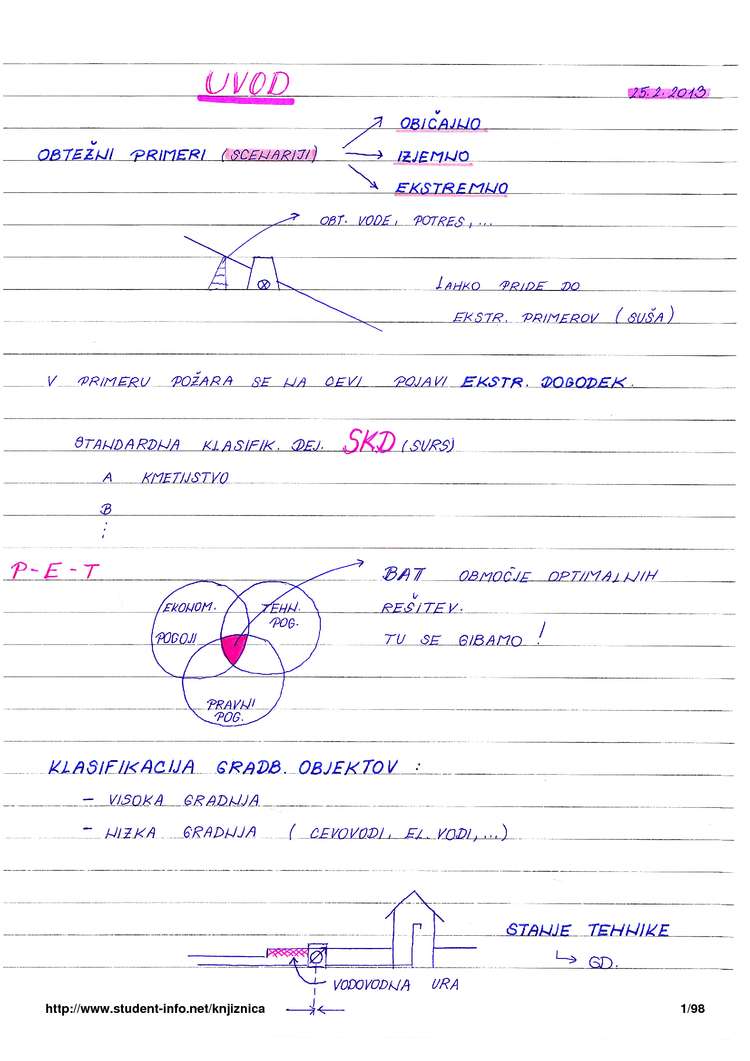 UVOD
25.2.2013
OBTEŽNI PRIMERI (SCENARIJI)
OBIČAJNO
IZJEMNO
EKSTREMNO
OBT. VODE, POTRES,...
LAHKO PRIDE DO
EKSTR. PRIMEROV (SUŠA)
V PRIMERU POŽARA SE NA CEVI POJAVI EKSTR. DOGODEK.
STANDARDNA KLASIFIK. DEJ. SKD (SURS)
A KMETIJSTVO
B
⋮
P-E-T
BAT OBMOČJE OPTIMALNIH
REŠITEV.
TU SE GIBAMO!
EKONOM.
POGOJI
TEHN.
POG.
PRAVNI
POG.
KLASIFIKACIJA GRADB. OBJEKTOV :
- VISOKA GRADNJA
- NIZKA GRADNJA (CEVOVODI, EL. VODI,...)
STANJE TEHNIKE
GD.
VODOVODNA URA
http://www.student-info.net/knjiznica
1/98